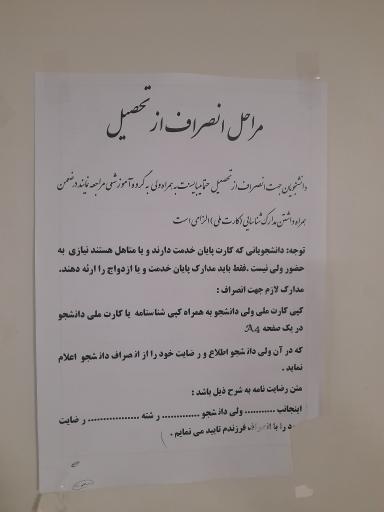 مراحل انصراف از تحصیل
دانشجویان جهت انصراف از تحصیل حتما میبایست به همراه ولی به گروه آموزشی مراجعه نمایند در ضمن
همراه داشتن مدارک شناسایی (کارت ملی) الزامی است
توجه: دانشجویانی که کارت پایان خدمت دارند و یا متاهل هستند نیازی به
حضور ولی نیست .فقط باید مدارک پایان خدمت و یا ازدواج را ارئه دهند.
مدارک لازم جهت انصراف :
کپی کارت ملی ولی دانشجو به همراه کپی شناسنامه یا کارت ملی دانشجو
در یک صفحه A4
که در آن ولی دانشجو اطلاع و رضایت خود را از انصراف دانشجو اعلام
نماید .
متن رضایت نامه به شرح ذیل باشد :
اینجانب ........... ولی دانشجو ............. رشته ................. رضایت
را با انصراف فرزندم تایید می نمایم .